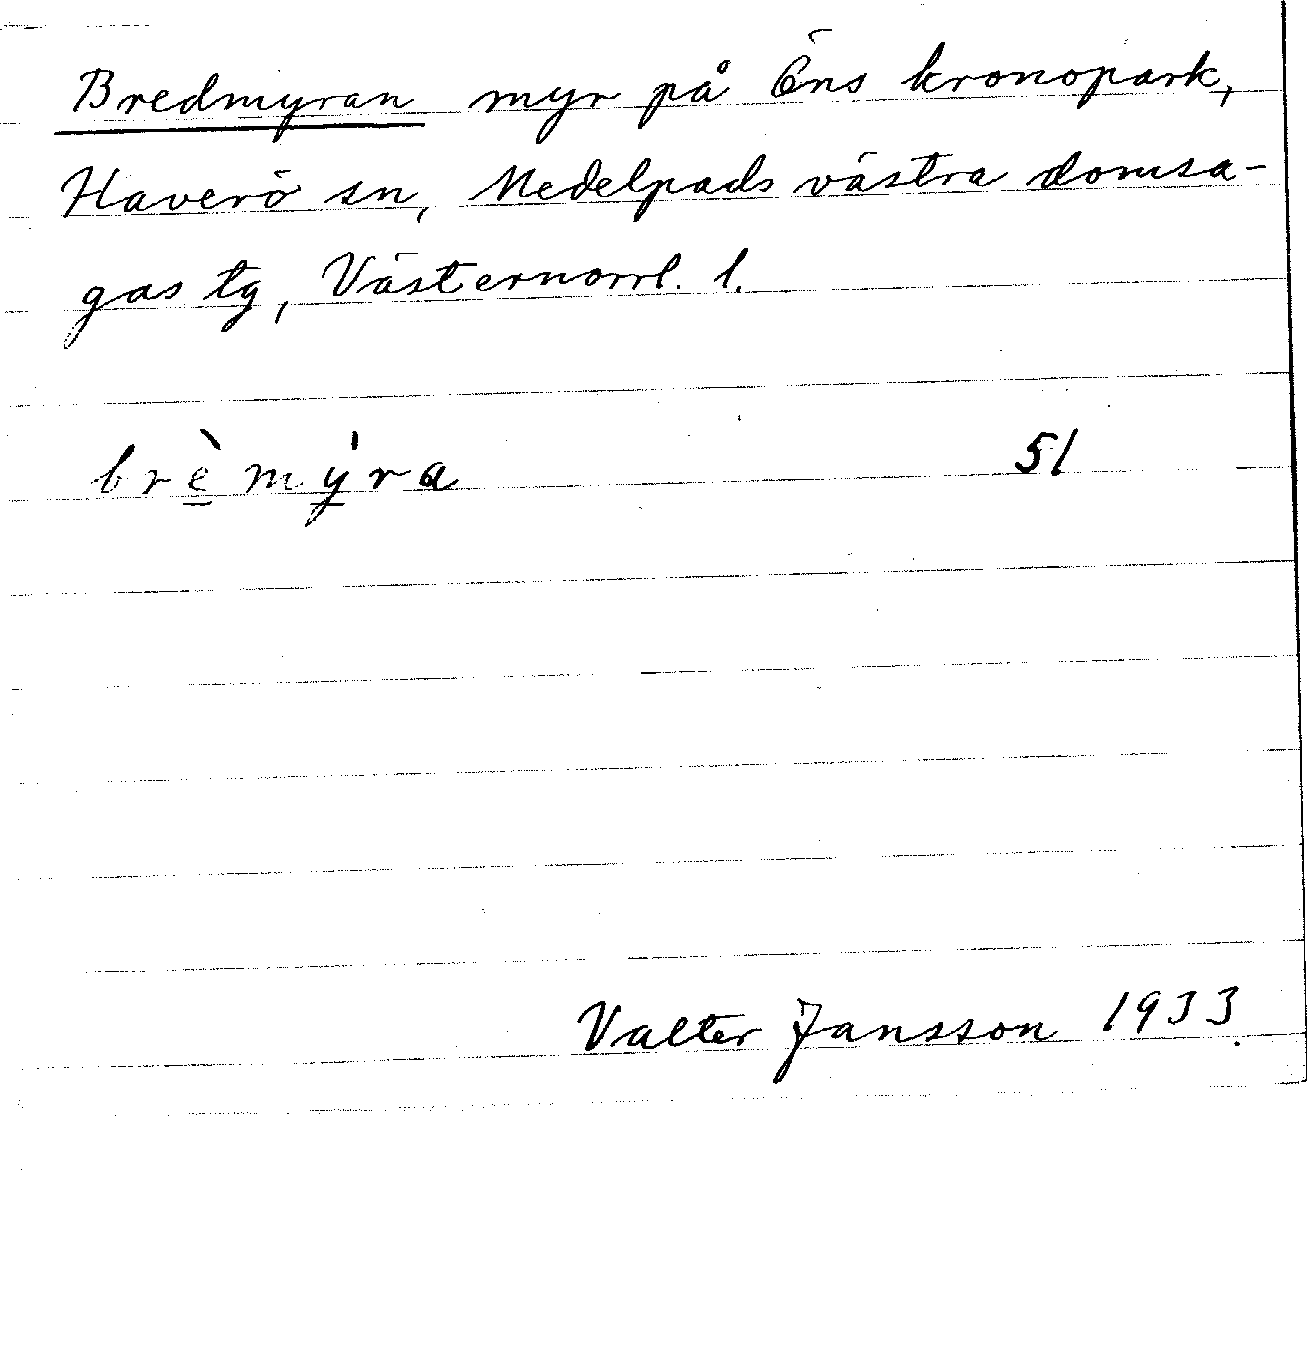 Bredmyran myr på Öns kronopark,
Haverö sn, Medelpads västra domsa-
gas tg, Västernorrl. l.
brè̠mý̠ra 51
Valter Jansson 1933.